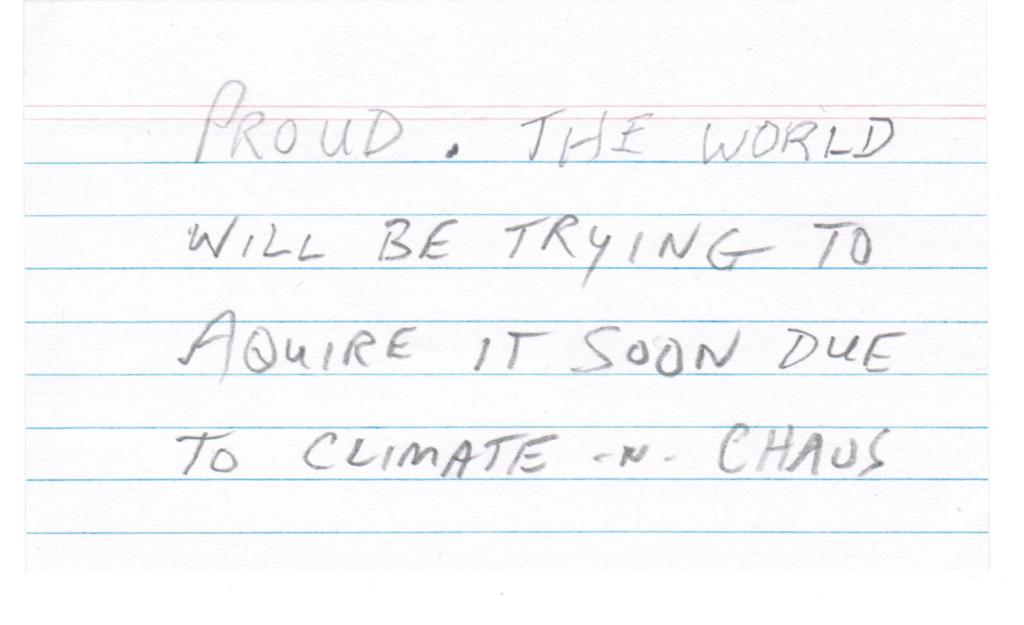 PROUD. THE WORLD
WILL BE TRYING TO
AQUIRE IT SOON DUE
TO CLIMATE -N- CHAUS